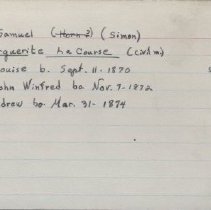 Samuel (Horn?) (Simon)
rguerite LaCourse (civil m)
ouise b. Sept. 11 - 1870
ohn Winfred bo. Nov. 7 - 1872
drew bo. Mar. 31 - 1874